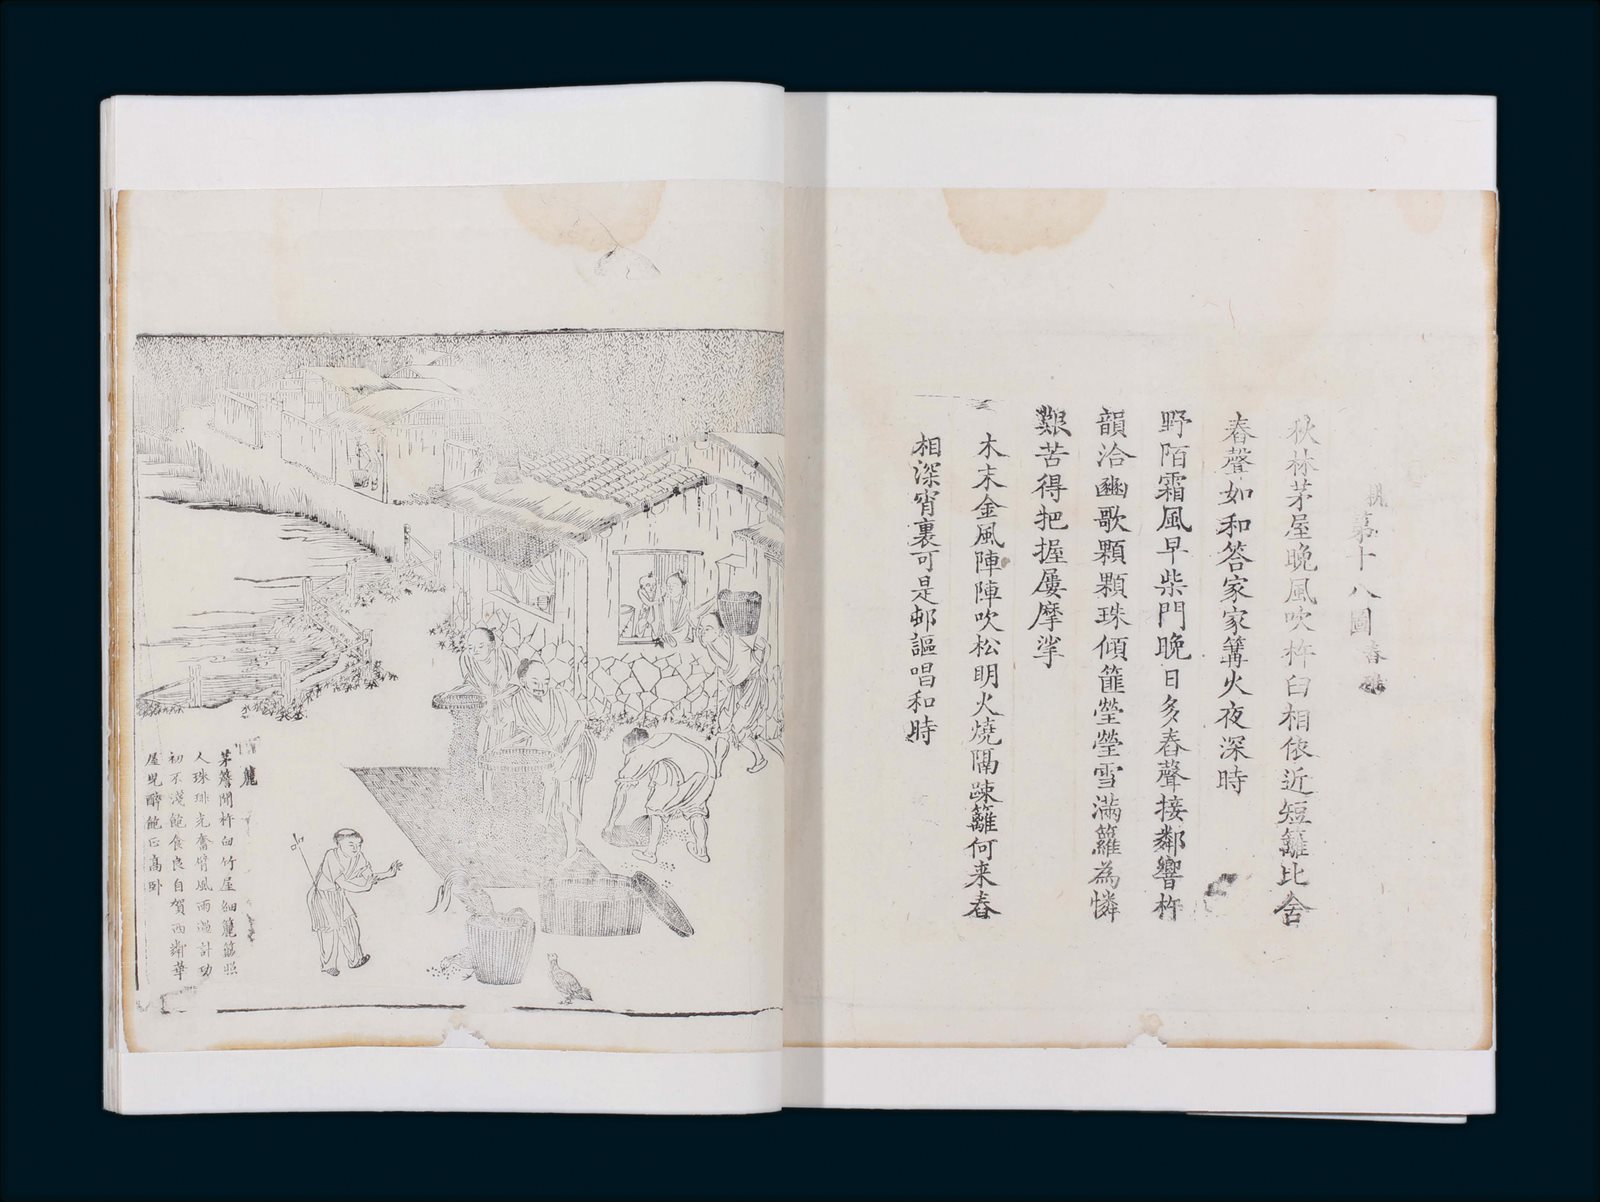 耕第十八圖舂碓
秋林茅屋晚風吹杵臼相依近短籬比舍
舂聲如和答家家篝火夜深時
野陌霜風早柴門晚日多舂聲接鄰響杵
韻洽豳歌顆顆珠傾篚瑩瑩雪滿籮為憐
艱苦得把握屢摩挲
木末金風陣陣吹松明火燒隔疎籬何来舂
相深宵裏可是邨謳唱和時
簏
茅簷閒杵臼竹屋細簏篩照
人珠琲光奮臂風雨過計功
初不淺飽食良自賀西鄰華
屋兒醉飽正高卧